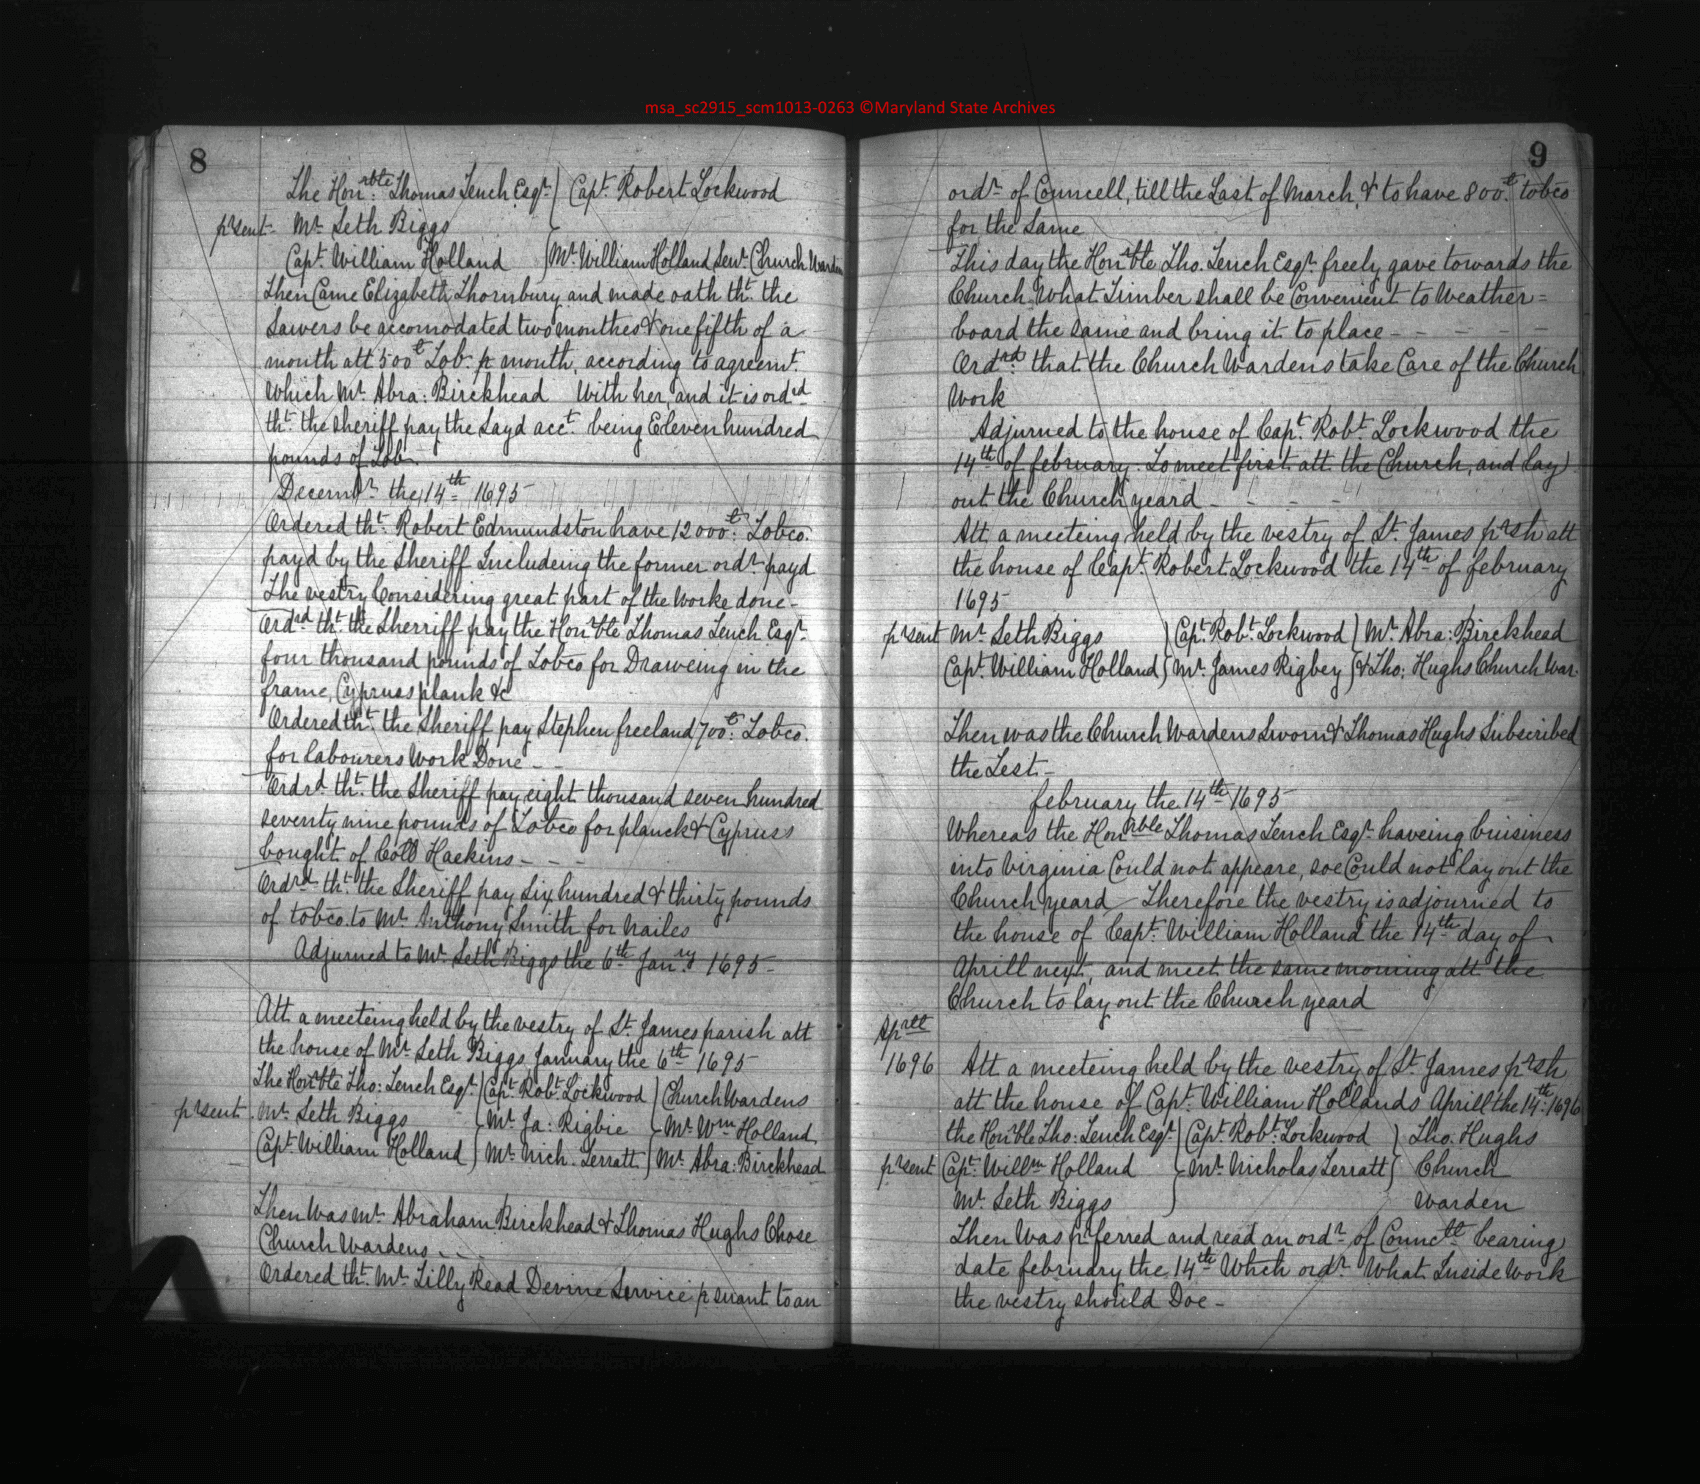 msa_sc2915_scm1013-0263 ©Maryland State Archives
8
The Honrble Thomas Tench Esqr } Capt. Robert Lockwood
prsent Mr Seth Biggs
Capt. William Holland } Mr William Holland Senr. Church Warden
Then Came Elizabeth Thornbury and made oath tht. the
Sawers be accomodated two monthes & one fifth of a
month att 500tt Tob. pr month, according to agreemt.
Which Mr Abra: Birckhead With her, and it is ordrd
tht. the Sheriff pay the Sayd acct. being Eleven hundred
pounds of Tob.
Decembr the 14th 1695
Ordered tht. Robert Edmundston have 12000tt: Tobco.
payd by the Sheriff Includeing the former ordr. payd
The vestry Considering great part of the Worke done -
Ordrd tht. the Sherriff pay the Honrble Thomas Tench Esqr.
four thousand pounds of Tobco for Draweing in the
frame, Cypruss plank &c
Ordered tht. the Sheriff pay Stephen freeland 700tt: Tobco.
for labourers Work Done - -
Ordrd tht. the Sheriff pay eight thousand seven hundred
seventy nine pounds of Tobco for planck & Cypruss
bought of Coll Haekins - - -
Ordrd tht. the Sheriff pay Six hundred & thirty pounds
of tobco. to Mr. Anthony Smith for Nailes
Adjurned to Mr. Seth Biggs the 6th Janry 1695 -
Att a meeteing held by the vestry of St. James parish att
the house of Mr Seth Biggs January the 6th 1695
The Honrble Tho: Tench Esqr. } Capt. Robt. Lockwood } Church Wardens
prsent Mr. Seth Biggs } Mr. Ja: Rigbie } Mr. Wm Holland
Capt. William Holland } Mr. Nich. Terratt } Mr. Abra: Birckhead
Then Was Mr Abraham Birckhead & Thomas Hughs Chose
Church Wardens - - -
Ordered tht. Mr. Lilly Read Devine Service psuant to an
9
ordr. of Councell, till the Last of March, & to have 800tt. tobco
for the Same
This day the Honrble Tho. Tench Esqr. freely gave towards the
Church What Timber shall be Convenient to Weather=
board the same and bring it to place - - - - -
Ordrd. that the Church Wardens take Care of the Church
Work
Adjurned to the house of Capt. Robt. Lockwood the
14th of february. To meet first att the Church, and lay
out the Church yeard - - - -
Att a meeteing held by the vestry of St. James prsh att
the house of Capt. Robert Lockwood the 14th of february
1695
prsent Mr. Seth Biggs } Capt. Robt. Lockwood } Mr. Abra: Birckhead
Capt. William Holland } Mr. James Rigbey } & Tho: Hughs Church War.
Then was the Church Wardens Sworn & Thomas Hughs Subscribed
the Test -
february the 14th 1695
Whereas the Honrble Thomas Tench Esqr. haveing buisiness
into Virginia Could not appeare, soe Could not lay out the
Church yeard - Therefore the vestry is adjourned to
the house of Capt. William Holland the 14th day of
Aprill next, and meet the same morning att the
Church to lay out the Church yeard
Aprill
1696 Att a meeteing held by the vestry of St. James prsh
att the house of Capt. William Hollands Aprill the 14th. 1696
the Honrble Tho: Tench Esqr. } Capt. Robt. Lockwood } Tho. Hughs
prsent Capt. Willm Holland } Mr. Nicholas Terratt } Church
Mr. Seth Biggs } Warden
Then Was prferred and read an ordr. of Conncll bearing
date february the 14th Which ordr. What Inside Work
the vestry should Doe -